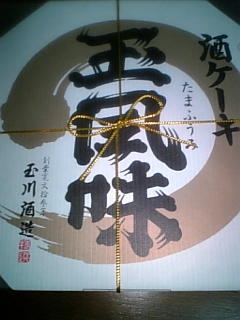 酒ケーキ
玉風味
たまふうみ
創業寛文拾参年
玉川酒造